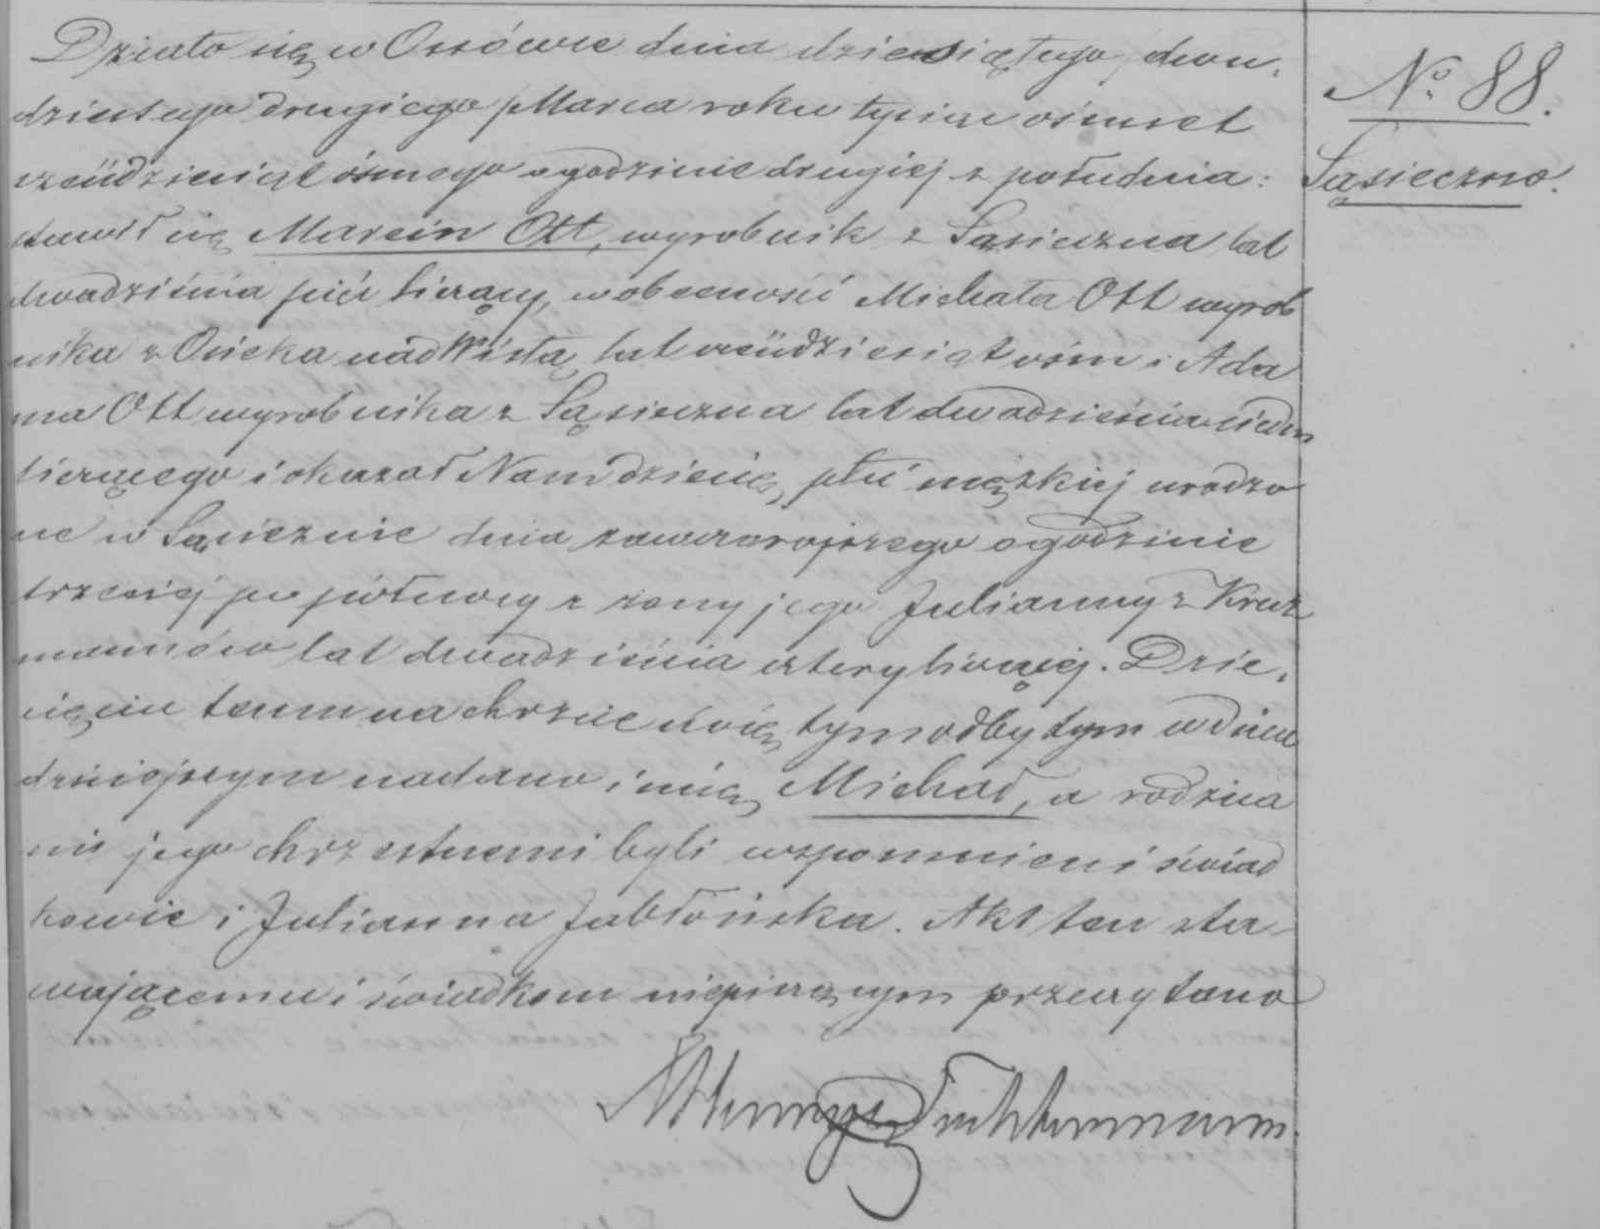 Działo się w Ossówce dnia dziesiątego, dwu,
dziestego drugiego Marca roku tysiąc ośmset
sześćdziesiąt ósmego o godzinie drugiej z południa:
stawił się Marcin Ott, wyrobnik z Sąsieczna lat
dwadzieścia pięć liczący, w obecności Michała Ott wyrob
nika z Osieka nad Wisłą lat sześćdziesiąt ośm i Ada
ma Ott wyrobnika z Sąsieczna lat dwadzieścia siedm
liczącego i okazał Nam dziecię płci męzkiej urodzo
ne w Sąsiecznie dnia zawczorajszego o godzinie
trzeciej po północy z żony jego Julianny z Kruz
mannów lat dwadzieścia cztery liczącej. Dzie,
cięciu temu na chrzcie świętym odbytym w dniu
dzisiejszym nadano imię Michał, a rodzica
mi jego chrzestnemi byli wspomnieni świad
kowie i Julianna Jabłońska. Akt ten sta-
wającemu i świadkom niepiśmiennym przeczytano
No. 88.
Sąsieczno.